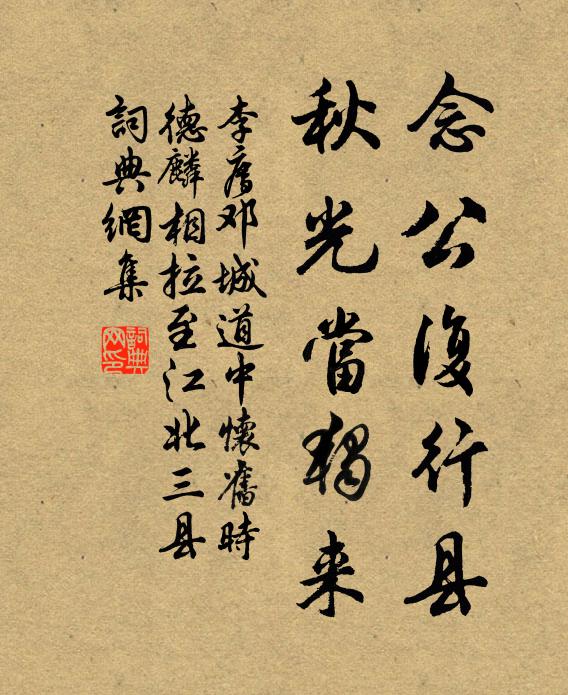 念公復行县
秋光當獨来
李廌邓城道中懷舊時
德麟相拉至江北三县
詞典網集
詞典网印